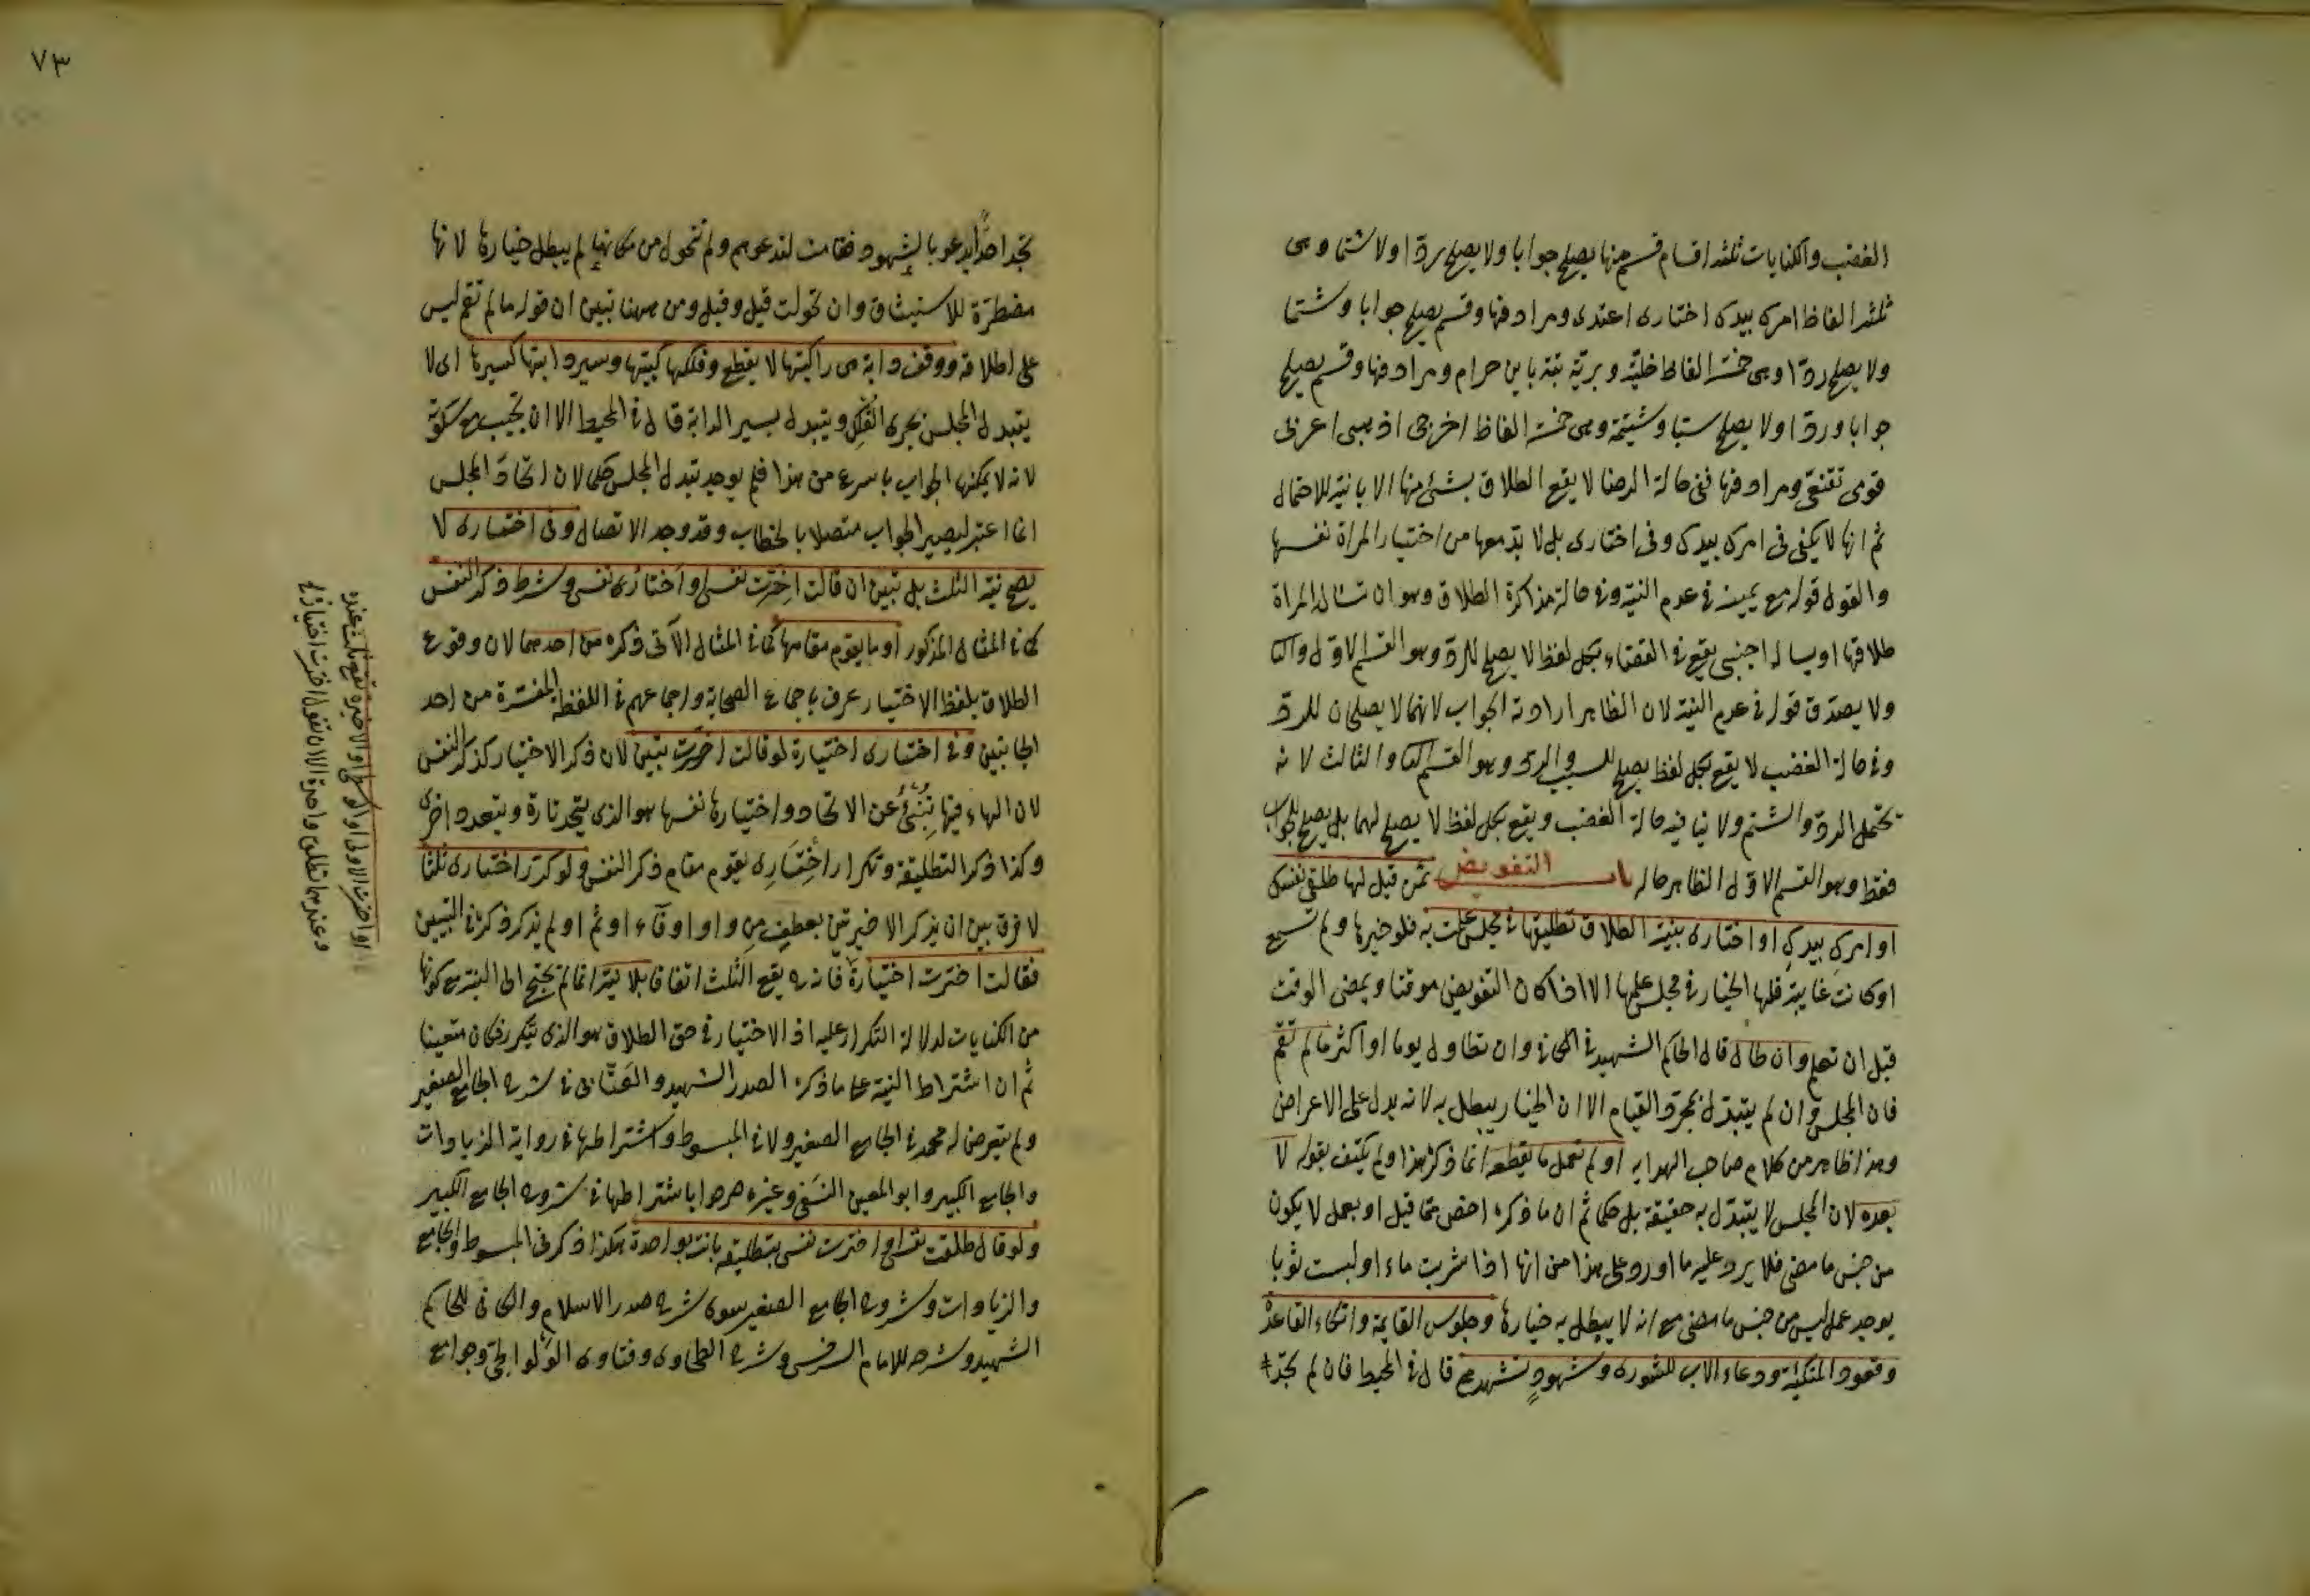 الغضب والكنايات ثلثه اقسام قسم منها يصلح جوابا ولا يصلح ردا ولا شتما وهى
ثلثه الفاظ امرك بيدك اختارى اعتدى ومرادفها وقسم يصلح جوابا وشتما
ولا يصلح ردا وهى خمسة الفاظ خلية وبرية بتة باين حرام ومرادفها وقسم يصلح
جوابا وردا ولا يصلح سبا وشتيمة وهى خمسة الفاظ اخرجى اذهبى اعزبى
قومى تقنعى ومرادفها ففى حالة الرضا لا يقع الطلاق بشئ منها الا بالنية للاحتمال
ثم انها لا يكفى فى امرك بيدك وفى اختارى بل لا بد معها من اختيار المراة نفسها
والقول قوله مع يمينه فى عدم النية وفى حالة مذاكرة الطلاق وهو ان تسال المراة
طلاقها او يساله اجنبى يقع فى القضاء بكل لفظ لا يصلح للرد وهو القسم الاول والثا
ولا يصدق قوله فى عدم النية لان الظاهر ارادته الجواب لانهما لا يصلحان للرد
وفى حالة الغضب لا يقع بكل لفظ يصلح للسب والرد وهو القسم الثا والثالث لانه
يحتمل الرد والشتم ولا ينافيه حالة الغضب ويقع بكل لفظ لا يصلح لهما بل يصلح للجواب
فقط وهو القسم الاول الظاهر حاله باب التفويض لمن قيل لها طلقى نفسك
او امرك بيدك او اختارى بنية الطلاق تطليقها فى مجلس علمت به فلو خيرها ولم تسمع
او كانت غايبة فلها الخيار فى مجلس علمها الا اذا كان التفويض موقتا ويمضى الوقت
قبل ان تعلم وان طال قال الحاكم الشهيد فى الكافى وان تطاول يوما او اكثر ما لم تقم
فان المجلس وان لم يتبدل بمجرد القيام الا ان الخيار يبطل به لانه يدل على الاعراض
وهذا ظاهر من كلام صاحب الهدايه او لم تعمل ما يقطعه انما ذكر هذا ولم يكتف بقوله لا
بعده لان المجلس لا يتبدل به حقيقة بل حكما ثم ان ما ذكره اخص مما قيل او بعمل لا يكون
من جنس ما مضى فلا يرد عليه ما اورد على هذا من انها اذا شربت ماء او لبست ثوبا
يوجد عمل ليس من جنس ما مضى مع انه لا يبطل به خيارها وجلوس القايمة واتكاء القاعدة
وقعود المتكئة ودعاء الاب للشورى وشهود تشهدهم قال فى المحيط فان لم تجد
٧٣
تجد احدا يدعو بالشهود فقامت لتدعوهم ولم تتحول من مكانها لم يبطل خيارها لانها
مضطرة للاستيثاق وان تحولت قيل وقيل ومن ههنا تبين ان قوله ما لم تقم ليس
على اطلاقه ووقف دابة هى راكبتها لا يقطع وفلكها كبيتها وسير دابتها كسيرها اى لا
يتبدل المجلس بجرى الفلك ويتبدل بسير الدابة قال فى المحيط الا ان تجيب مع سكوته
لانه لا يمكنها الجواب باسرع من هذا فلم يوجد تبدل المجلس حكما لان اتحاد المجلس
انما اعتبر ليصير الجواب متصلا بالخطاب وقد وجد الاتصال وفى اختارى لا
يصح نية الثلث بل تبين ان قالت اخترت نفسى او اختار نفسى وشرط ذكر النفس
كما فى المثال المذكور او ما يقوم مقامها كما فى المثال الآتى ذكره من احدهما لان وقوع
الطلاق بلفظ الاختيار عرف باجماع الصحابة واجماعهم فى اللفظة المفسرة من احد
الجانبين وفى اختارى اختيارة لو قالت اخترت تبين لان ذكر الاختيار كذكر النفس
لان الهاء فيها تنبئ عن الاتحاد واختيارها نفسها هو الذى يتحد تارة ويتعدد اخرى
وكذا ذكر التطليقة وتكرار اختارى يقوم مقام ذكر النفس ولو كرر اختارى ثلثا
لا فرق بين ان يذكر الاخيرتين بعطف من واو او فاء او ثم او لم يذكر ذكره فى التبيين
فقالت اخترت اختيارة فانه يقع الثلث اتفاقا بلا نية انما لم يحتج الى النية مع كونها
من الكنايات لدلالة التكرار عليه اذ الاختيار فى حق الطلاق هو الذى يتكرر فكان متعينا
ثم ان اشتراط النية على ما ذكره الصدر الشهيد والعتابى فى شرح الجامع الصغير
ولم يتعرض له محمد فى الجامع الصغير ولا فى المبسوط واشتراطها فى رواية الزيادات
والجامع الكبير وابو المعين النسفى وغيره صرحوا باشتراطها فى شروح الجامع الكبير
ولو قال طلقت نفسى او اخترت نفسى بتطليقة بانت بواحدة هكذا ذكر فى المبسوط والجامع
والزيادات وشروح الجامع الصغير سوى شرح صدر الاسلام والكافى للحاكم
الشهيد وشرحه للامام السرخسى وشرح الطحاوى وفتاوى الولوالجى وجوامع
او اخترت الاولى او الوسطى او الاخيرة تقع ثلث عنده
وعندهما تطلق واحدة الا ان تقول اخترت اختيارة